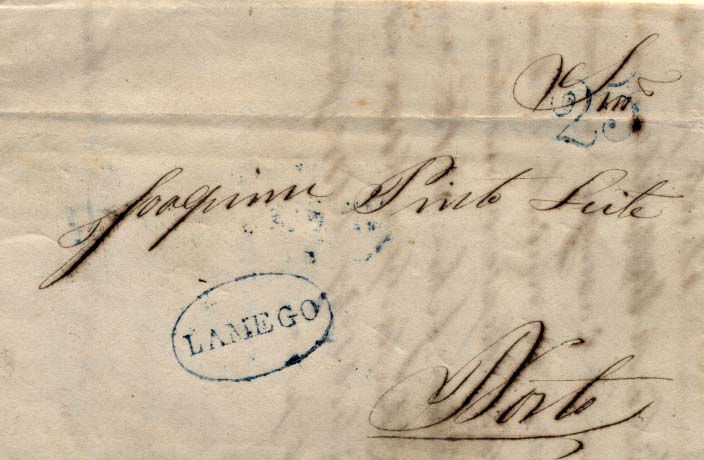 Snr
25
Joaquim Pinto Leite
LAMEGO
Porto